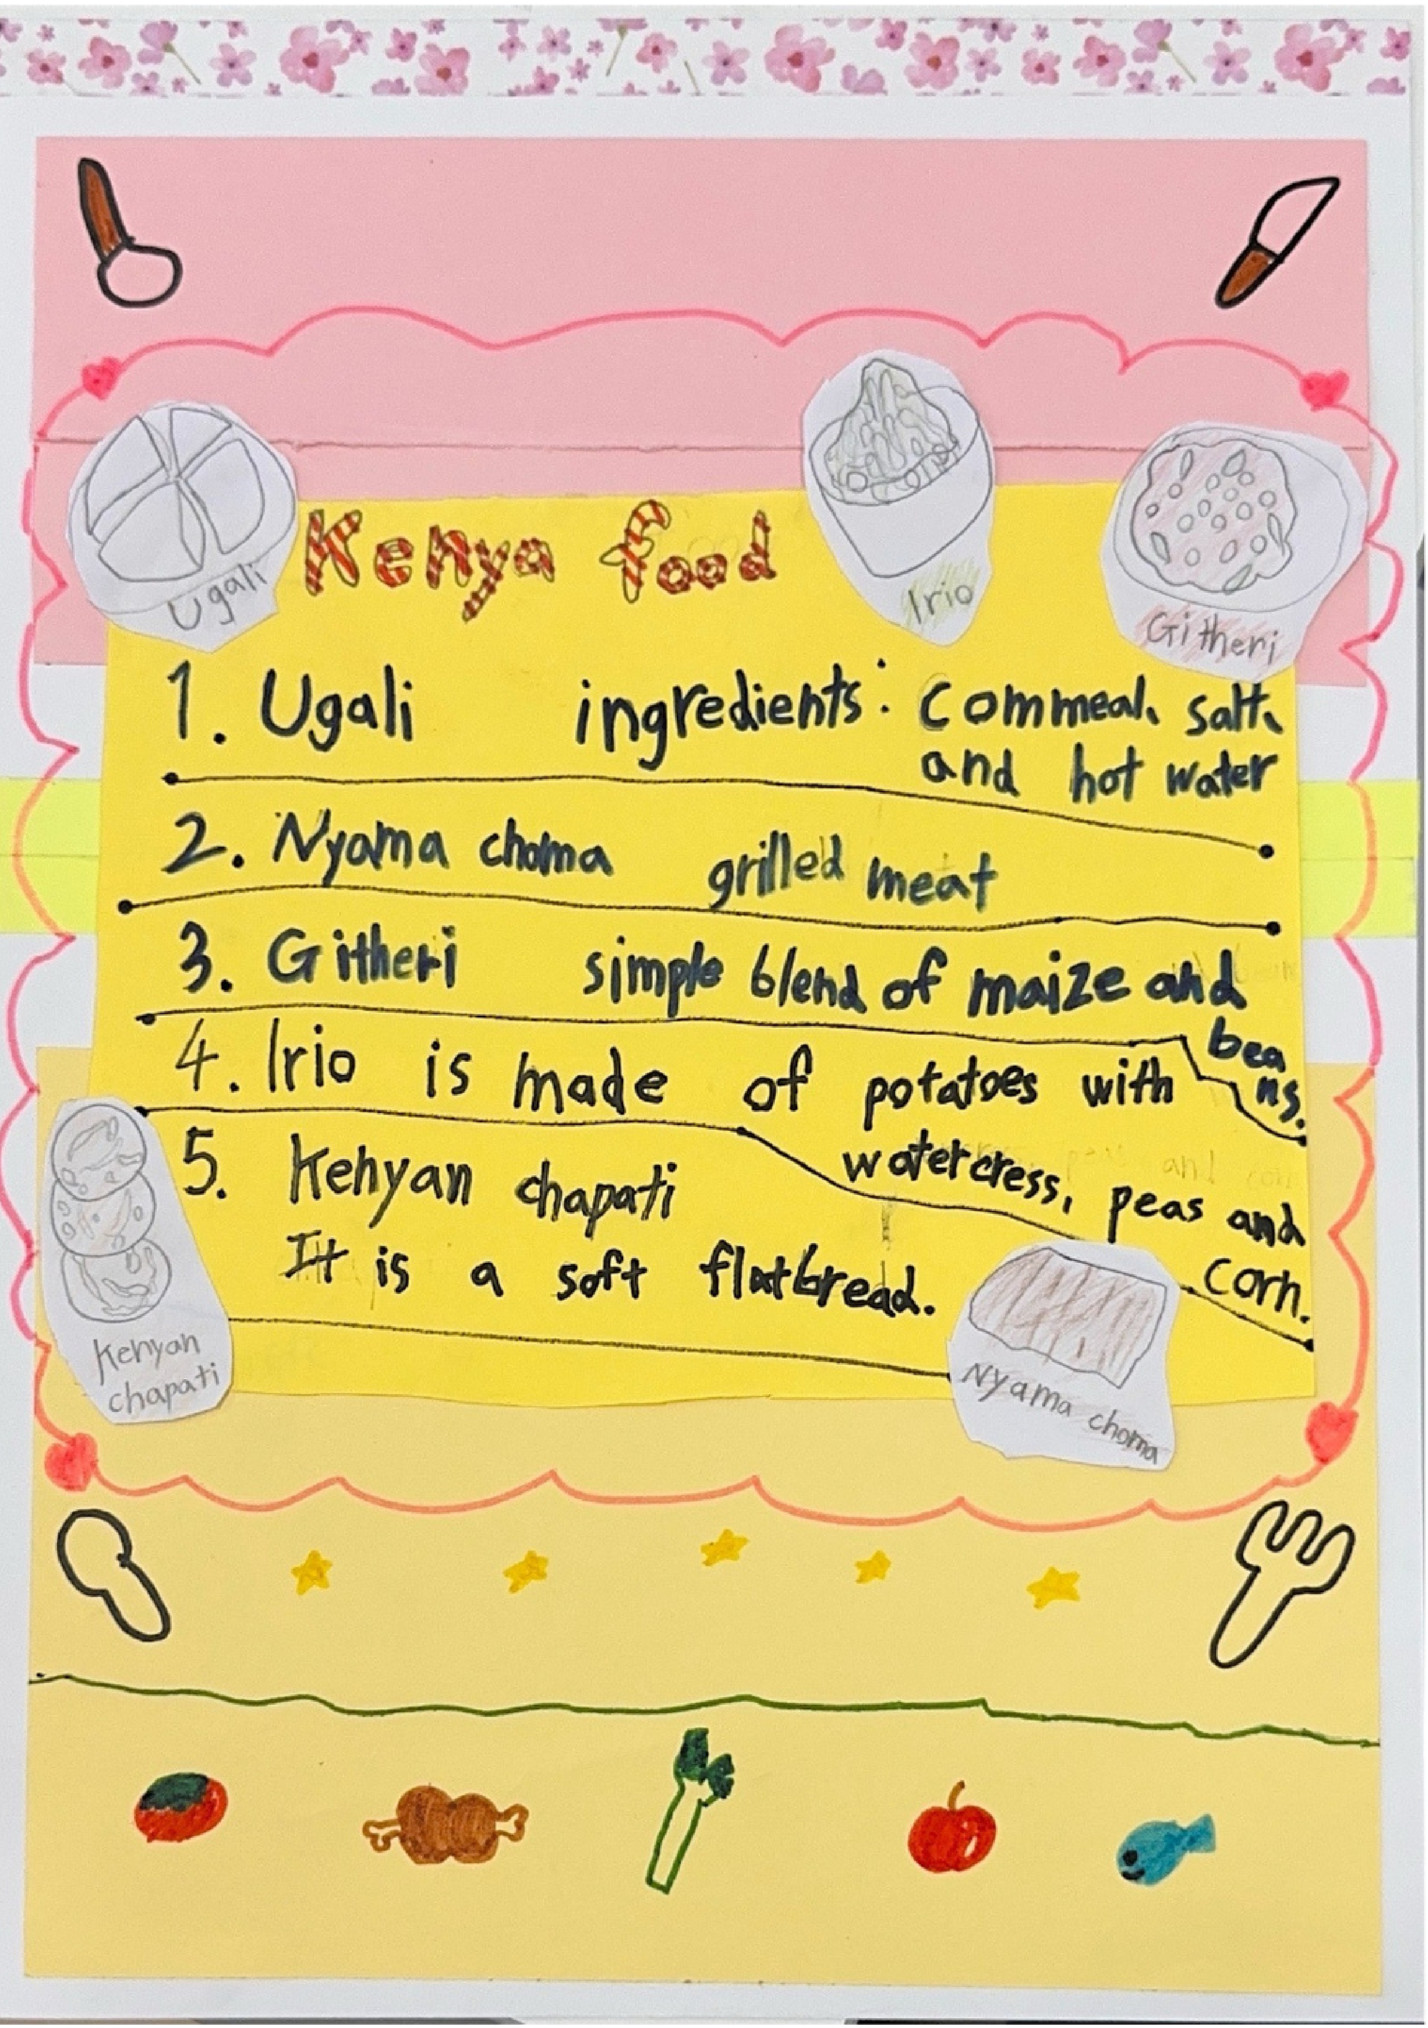 Kenya food
Ugali
Irio
Githeri
1. Ugali ingredients: Cornmeal, salt,
and hot water
2. Nyama choma grilled meat
3. Githeri simple blend of maize and
beans.
4. Irio is made of potatoes with
watercress, peas and
corn.
5. Kenyan chapati
It is a soft flatbread.
Kenyan
chapati
Nyama choma